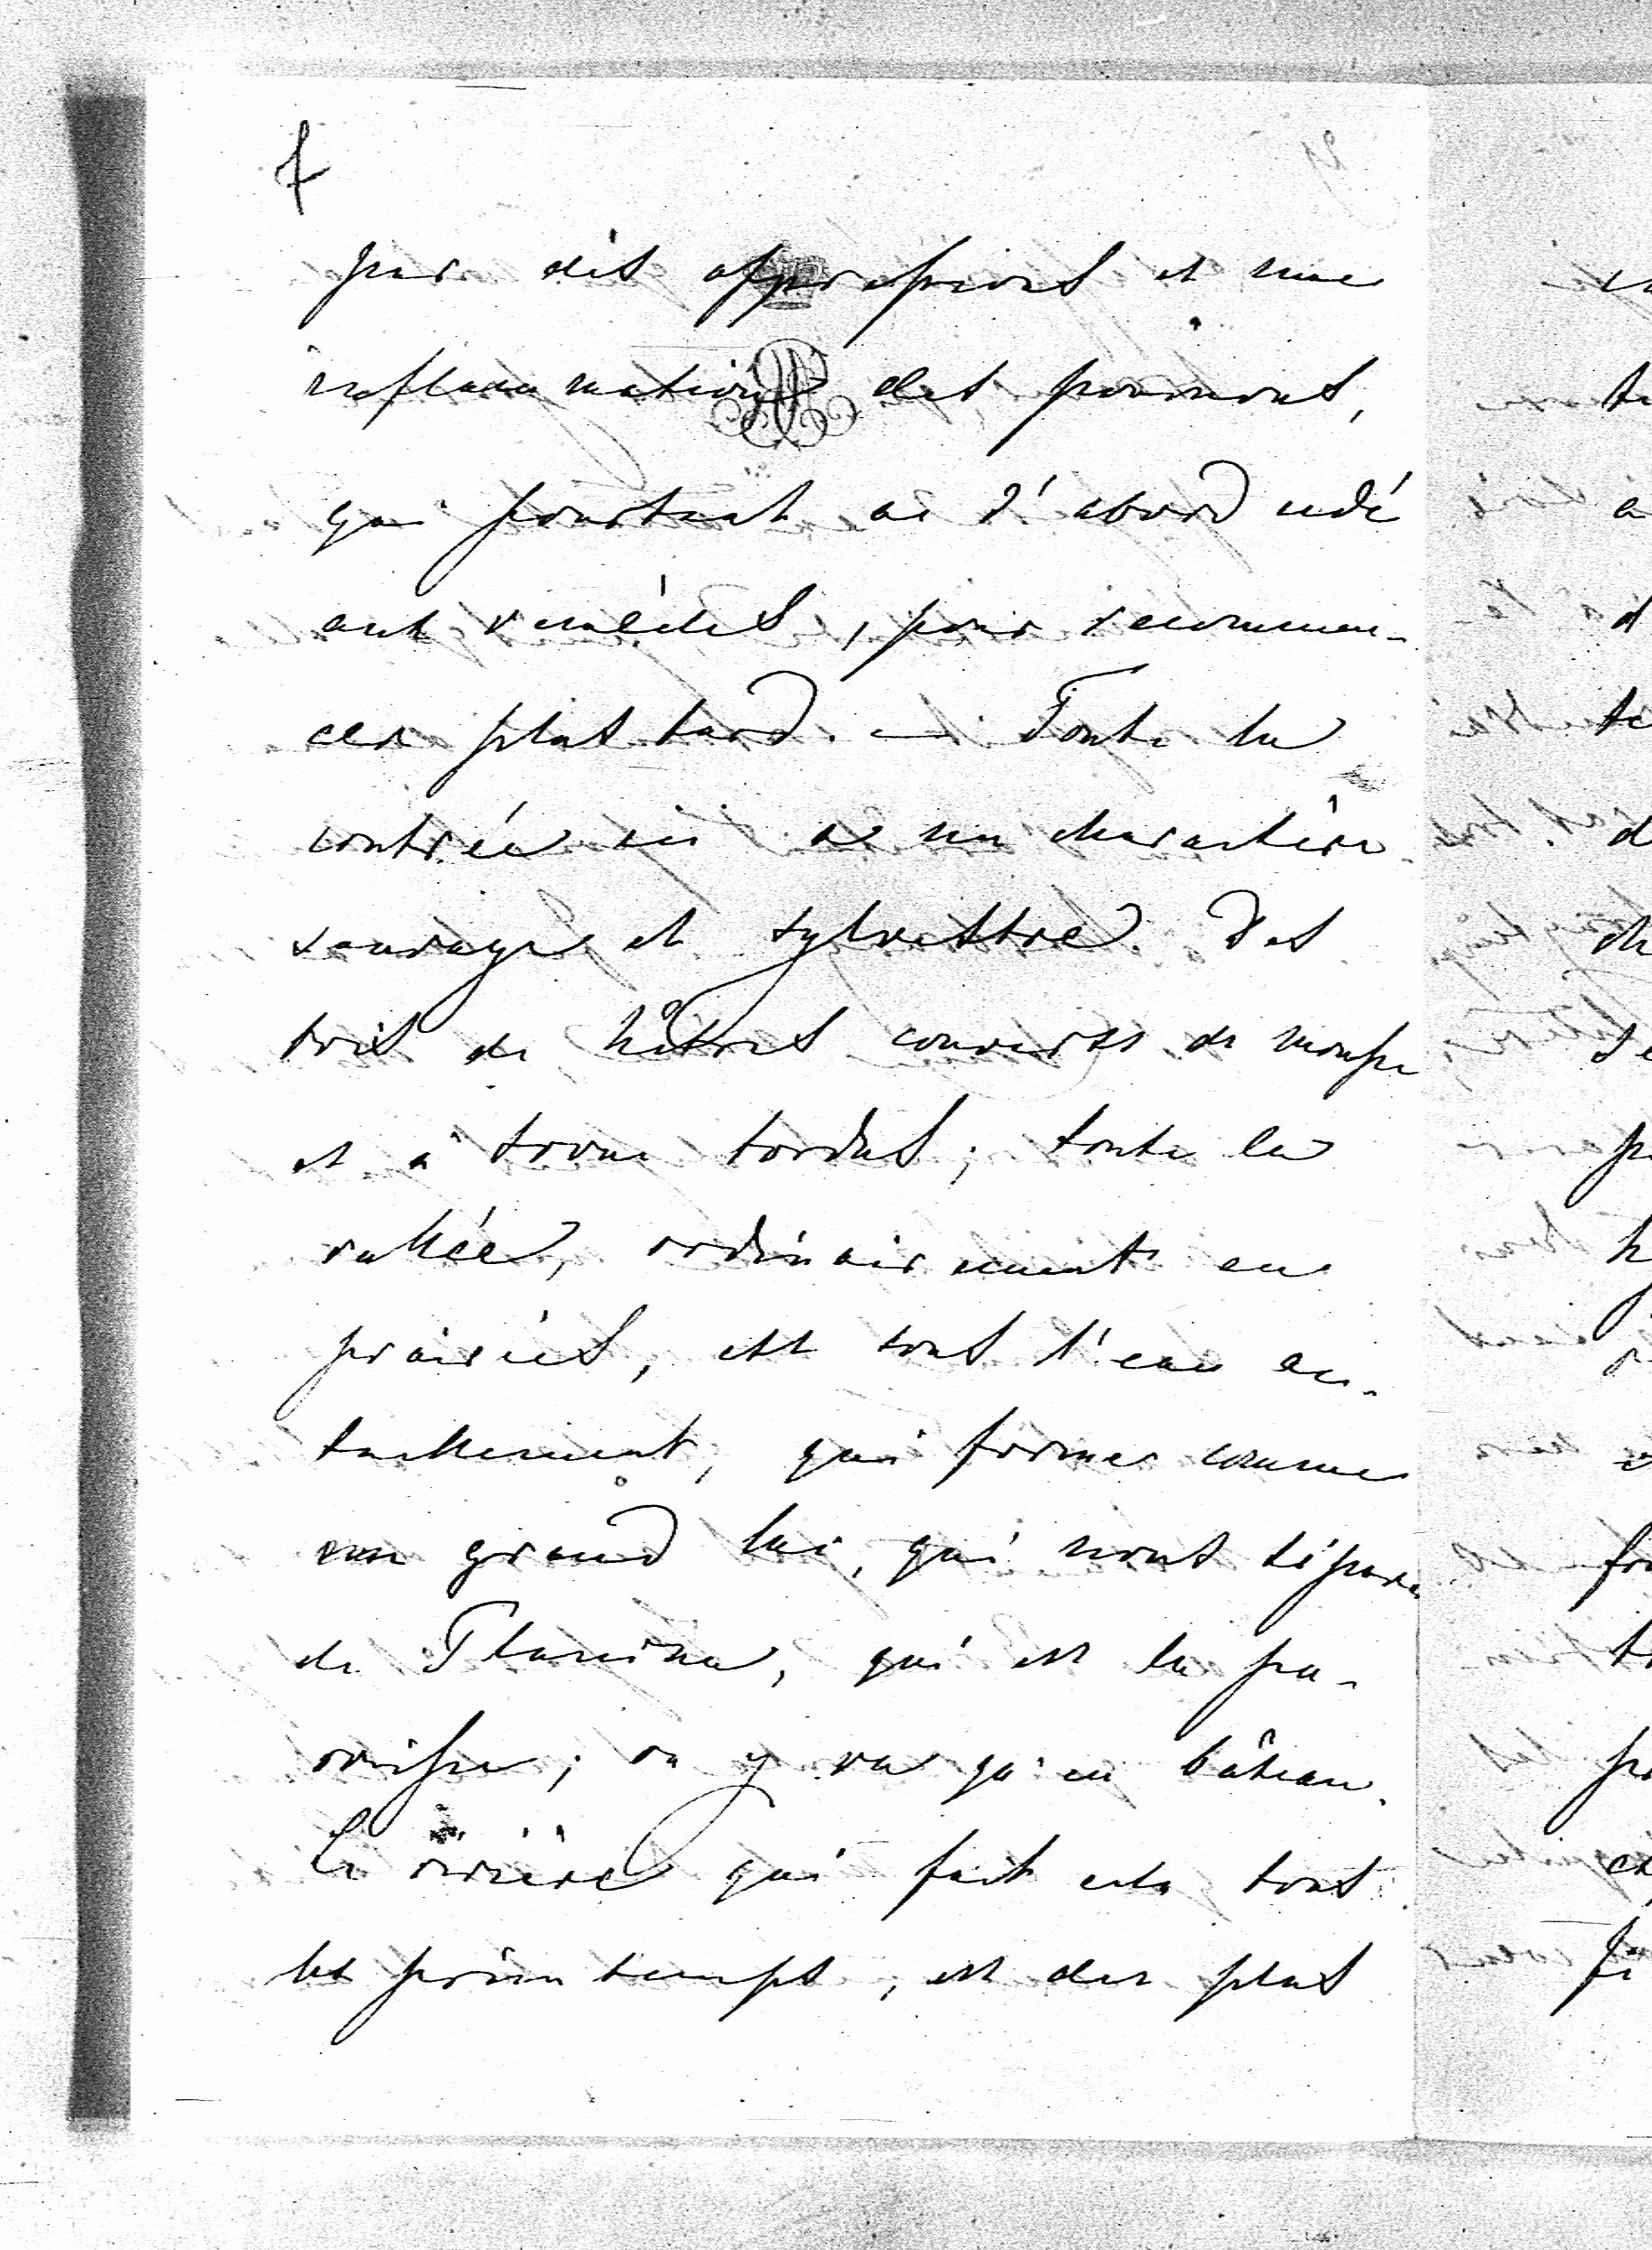 7
par des oppressions et une
inflammation des poumons,
qui pourtant a d'abord cédé
aux remèdes, pour recommen-
cer plus tard. — Toute la
contrée ici a un charactère
sauvage et sylvestre. Des
bois de hêtres couverts de mousse
et à tronc tordus; toute la
vallée, ordinairement en
prairies, est sous l'eau ac-
tuellement, qui forme comme
un grand lac, qui nous sépare
de Planina, qui est la pa-
roisse; on y va qu'en bâteau.
La rivière qui fait cela tous
les printemps, est des plus